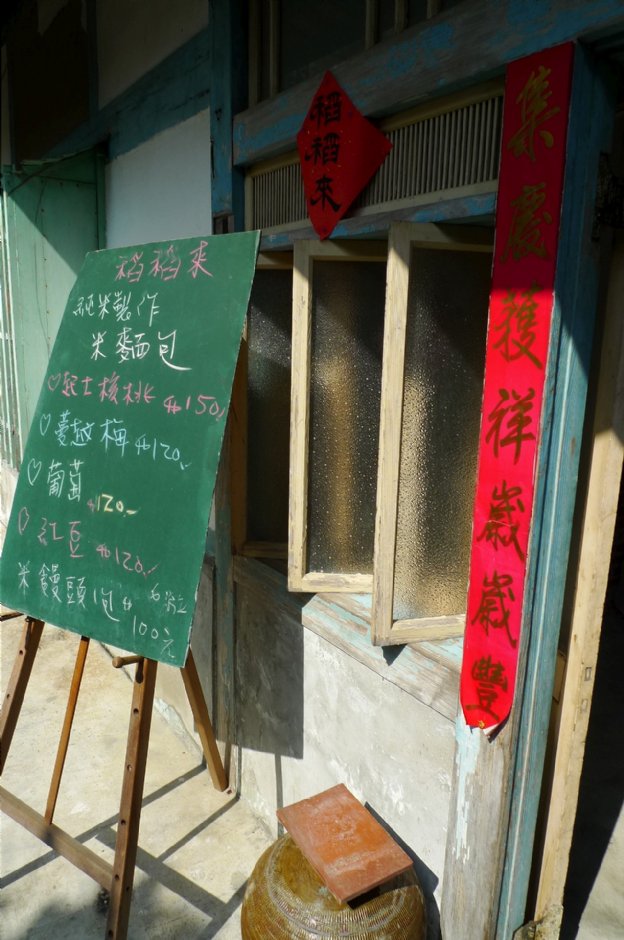 稻稻來
純米製作
米麵包
♡起士核桃 $150.
♡蔓越梅 $120.
♡葡萄 $120.
♡紅豆 $120.
米饅頭1包 6粒
100元
稻稻來
集慶獲祥歲歲豐